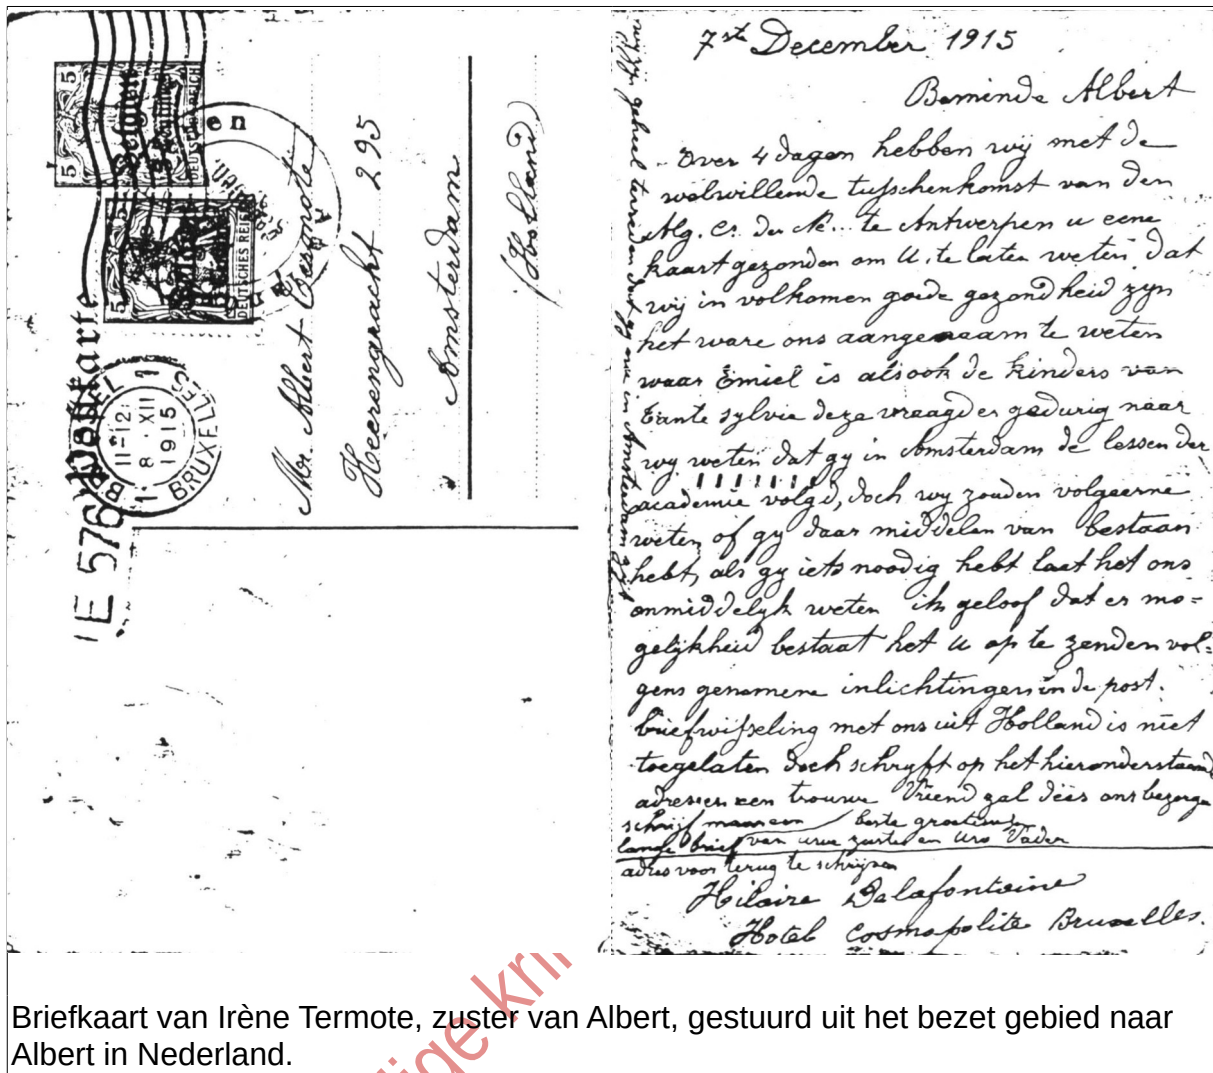 5
5
Belgien
DEUTSCHES REICH
5
5
Belgien
DEUTSCHES REICH
en
Postkarte
BRUSSEL 1
11-12
8 · XII
1915
1 BRUXELLES
E 576
Mr. Albert Termote
Heerengracht 295
Amsterdam
(Holland)
7ste December 1915
Beminde Albert
Over 4 dagen hebben wij met de
welwillende tusschenkomst van den
Alg. C. der N... te Antwerpen u eene
kaart gezonden om U. te laten weten dat
wij in volkomen goede gezondheid zyn
het ware ons aangenaam te weten
waar Emiel is alsook de kinders van
tante sylvie deze vraagd er gedurig naar
wy weten dat gy in Amsterdam de lessen der
academie volgd, doch wy zouden volgeerne
weten of gy daar middelen van bestaan
hebt, als gy iets noodig hebt laat het ons
onmiddelyk weten ik geloof dat er mo=
gelijkheid bestaat het u op te zenden vol=
gens genomene inlichtingen in de post.
briefwisseling met ons uit Holland is niet
toegelaten doch schryft op het hieronderstaand
adres een trouwe Vriend zal dees ons bezorge
schrijf maar een beste groetissen
lange brief van uwe zuster en Uw Vader
adres voor terug te schrijven
Hilaire Delafontaine
Hotel Cosmopolite Bruxelles.
wij zijn geheel tevreden dat gy nu in Amsterdam zyt
Briefkaart van Irène Termote, zuster van Albert, gestuurd uit het bezet gebied naar
Albert in Nederland.